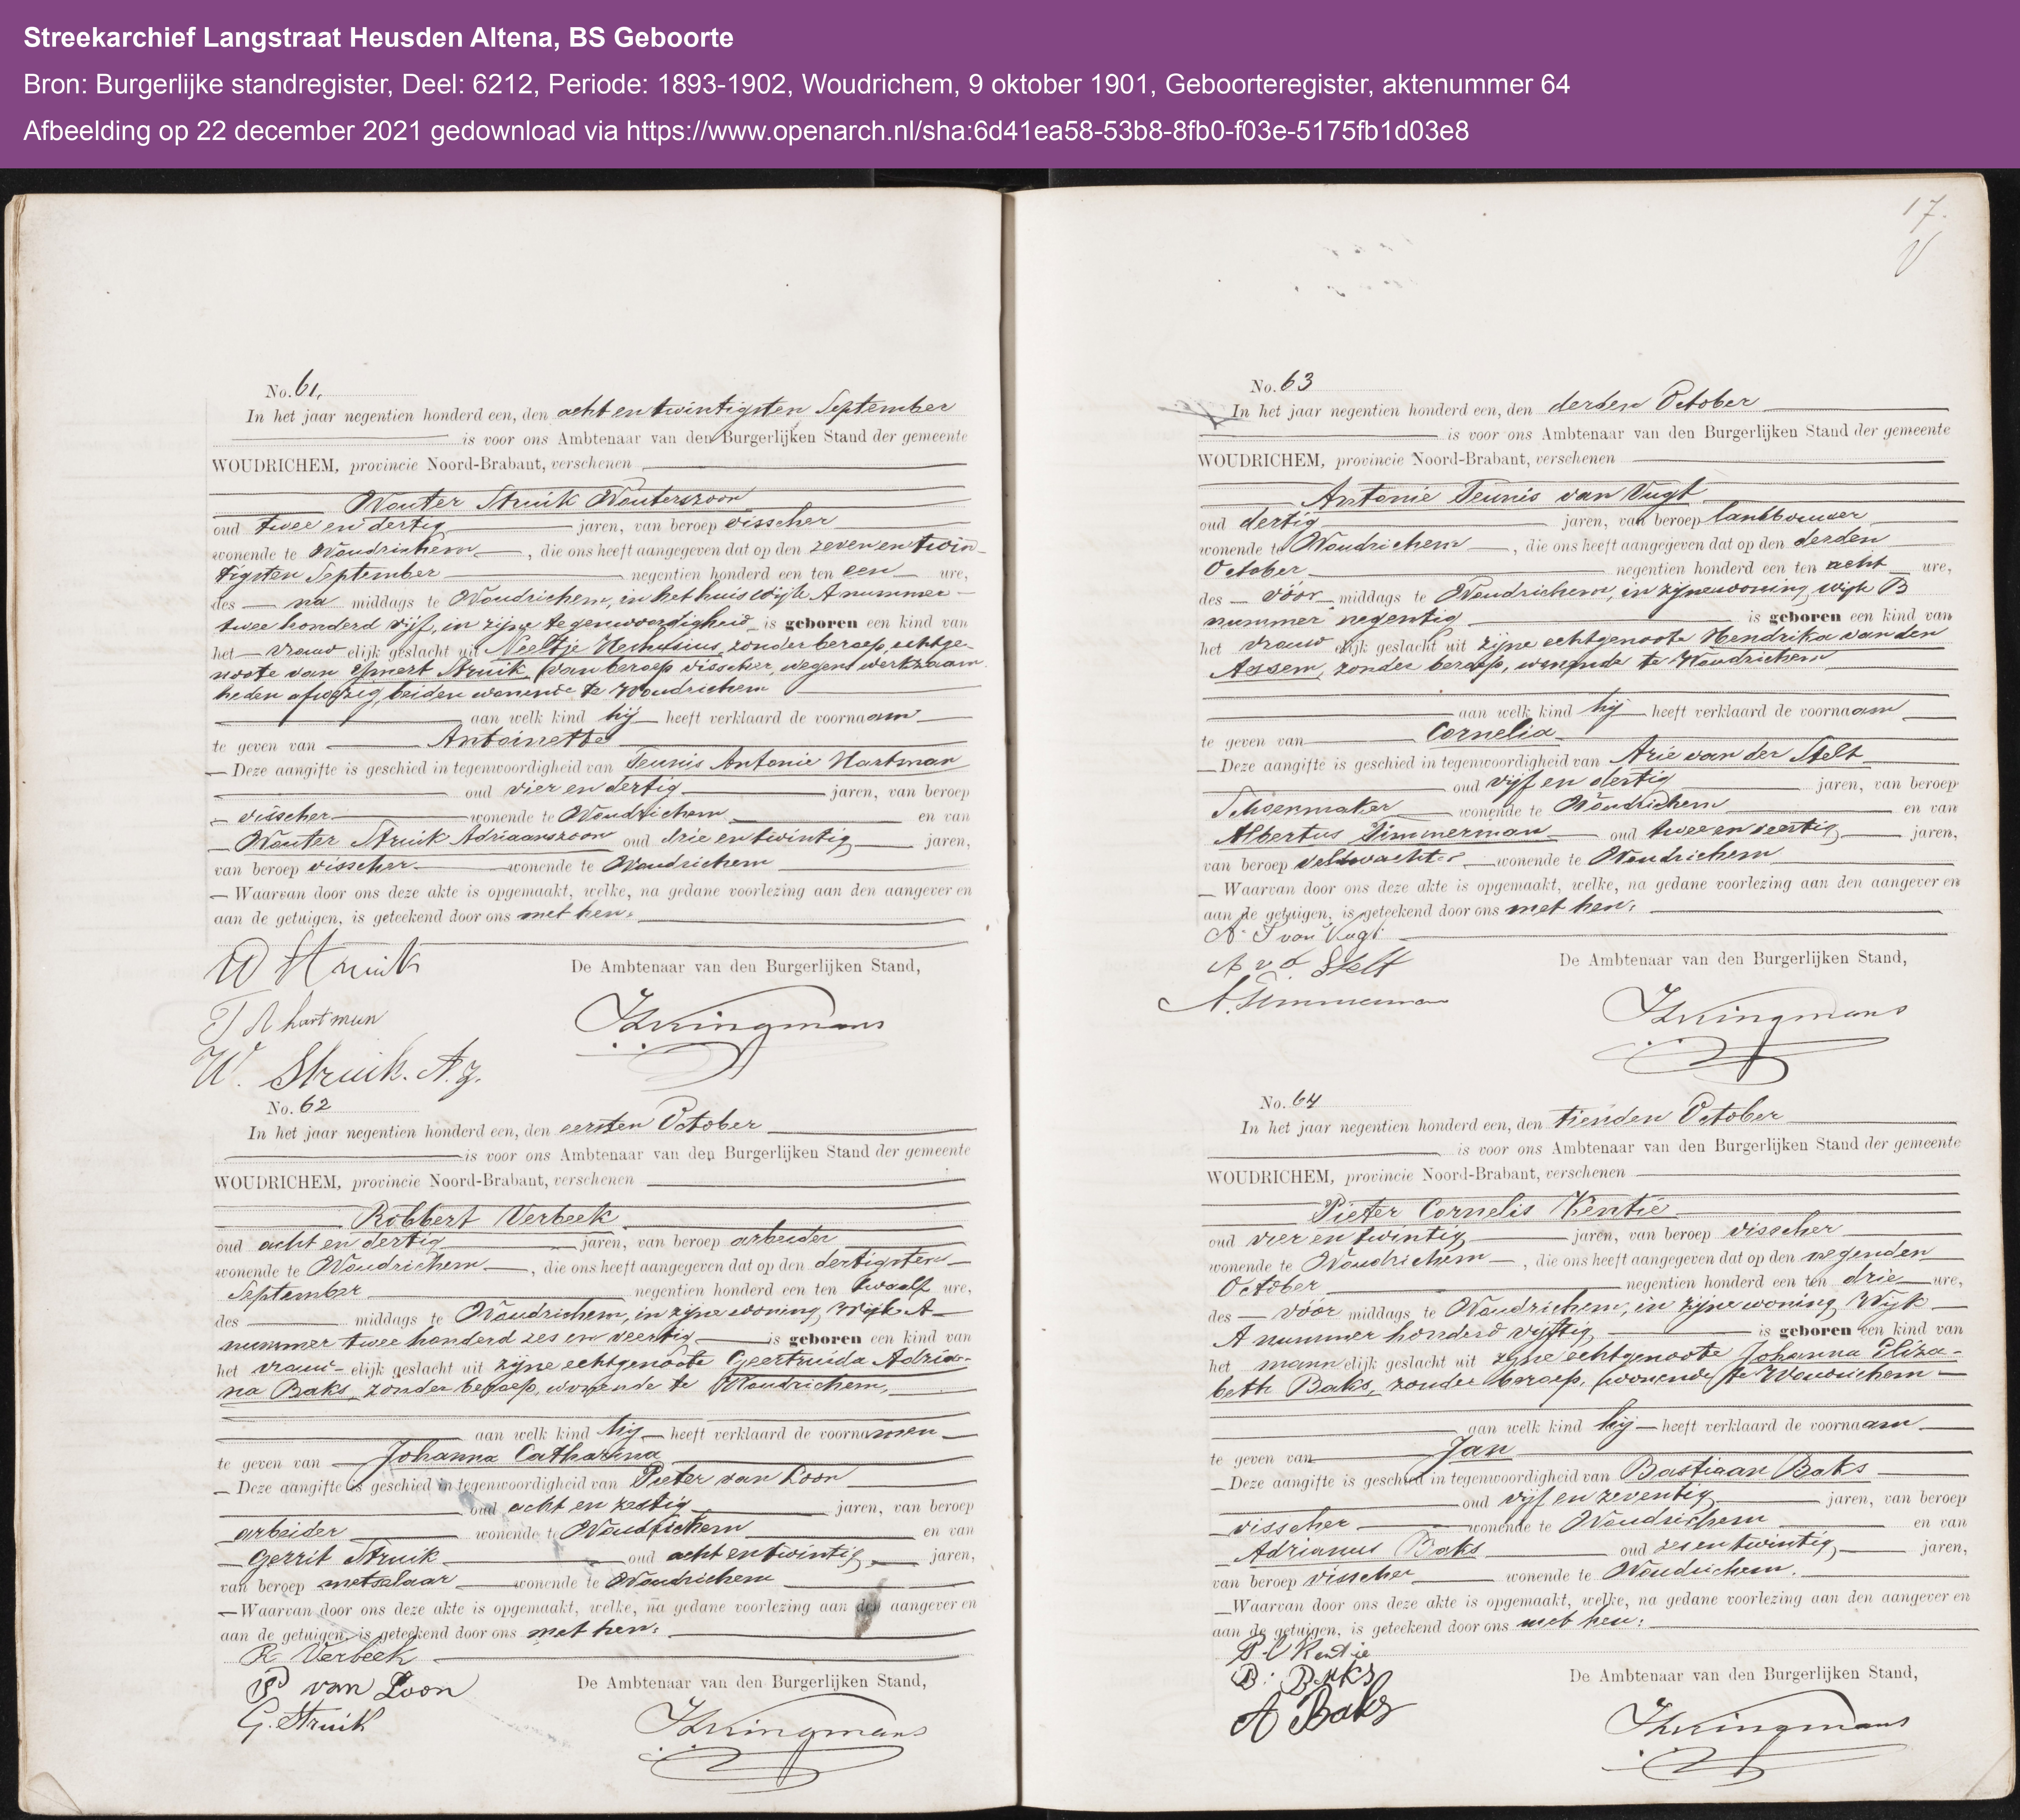 Streekarchief Langstraat Heusden Altena, BS Geboorte
Bron: Burgerlijke standregister, Deel: 6212, Periode: 1893-1902, Woudrichem, 9 oktober 1901, Geboorteregister, aktenummer 64
Afbeelding op 22 december 2021 gedownload via https://www.openarch.nl/sha:6d41ea58-53b8-8fb0-f03e-5175fb1d03e8
No. 61.
In het jaar negentien honderd een, den acht en twintigsten September
is voor ons Ambtenaar van den Burgerlijken Stand der gemeente
WOUDRICHEM, provincie Noord-Brabant, verschenen
Wouter Struik Wouterszoon
oud twee en dertig jaren, van beroep visscher
wonende te Woudrichem, die ons heeft aangegeven dat op den zeven en twin-
tigsten September negentien honderd een ten een ure,
des na middags te Woudrichem, in het huis Wijk A nummer
twee honderd vijf, in zijne tegenwoordigheid is geboren een kind van
het vrouwelijk geslacht uit Neeltje zonder beroep, echtge-
noote van Struik, van beroep visscher, wegens werkzaam
heden afwezig, beiden wonende te Woudrichem
aan welk kind hij heeft verklaard de voornaam
te geven van Antoinette
Deze aangifte is geschied in tegenwoordigheid van Teunis Antonie Hartman
oud vier en dertig jaren, van beroep
visscher wonende te Woudrichem en van
Wouter Struik Adriaanszoon oud drie en twintig jaren,
van beroep visscher wonende te Woudrichem
Waarvan door ons deze akte is opgemaakt, welke, na gedane voorlezing aan den aangever en
aan de getuigen, is geteekend door ons met hen.
W Struik
De Ambtenaar van den Burgerlijken Stand,
T A hartman
W. Struik. A.z.
No. 62
In het jaar negentien honderd een, den eersten October
is voor ons Ambtenaar van den Burgerlijken Stand der gemeente
WOUDRICHEM, provincie Noord-Brabant, verschenen
Robbert Verbeek
oud acht en dertig jaren, van beroep arbeider
wonende te Woudrichem, die ons heeft aangegeven dat op den dertigsten
September negentien honderd een ten twaalf ure,
des middags te Woudrichem, in zijne woning, Wijk A
nummer twee honderd zes en veertig is geboren een kind van
het vrouwelijk geslacht uit zijne echtgenoote Geertruida Adria-
na Baks, zonder beroep, wonende te Woudrichem,
aan welk kind hij heeft verklaard de voornamen
te geven van Johanna Catharina
Deze aangifte is geschied in tegenwoordigheid van Pieter van Loon
oud acht en zestig jaren, van beroep
arbeider wonende te Woudrichem en van
Gerrit Struik oud acht en twintig jaren,
van beroep metselaar wonende te Woudrichem
Waarvan door ons deze akte is opgemaakt, welke, na gedane voorlezing aan den aangever en
aan de getuigen, is geteekend door ons met hen.
R Verbeek
P van Loon
De Ambtenaar van den Burgerlijken Stand,
G. Struik
17.
No. 63
In het jaar negentien honderd een, den derden October
is voor ons Ambtenaar van den Burgerlijken Stand der gemeente
WOUDRICHEM, provincie Noord-Brabant, verschenen
Antonie Teunis van Vugt
oud dertig jaren, van beroep landbouwer
wonende te Woudrichem, die ons heeft aangegeven dat op den derden
October negentien honderd een ten acht ure,
des vóór middags te Woudrichem, in zijne woning, wijk B
nummer negentig is geboren een kind van
het vrouwelijk geslacht uit zijne echtgenoote Hendrika van den
Assem, zonder beroep, wonende te Woudrichem
aan welk kind hij heeft verklaard de voornaam
te geven van Cornelia
Deze aangifte is geschied in tegenwoordigheid van Arie van der Stelt
oud vijf en dertig jaren, van beroep
Schoenmaker wonende te Woudrichem en van
Albertus Timmerman oud twee en veertig jaren,
van beroep veldwachter wonende te Woudrichem
Waarvan door ons deze akte is opgemaakt, welke, na gedane voorlezing aan den aangever en
aan de getuigen, is geteekend door ons met hen.
A T van Vugt
A v d. Stelt
De Ambtenaar van den Burgerlijken Stand,
A. Timmerman
No. 64
In het jaar negentien honderd een, den tienden October
is voor ons Ambtenaar van den Burgerlijken Stand der gemeente
WOUDRICHEM, provincie Noord-Brabant, verschenen
Pieter Cornelis Kentie
oud vier en twintig jaren, van beroep visscher
wonende te Woudrichem, die ons heeft aangegeven dat op den negenden
October negentien honderd een ten drie ure,
des vóór middags te Woudrichem, in zijne woning, Wijk
A nummer honderd vijftig, is geboren een kind van
het mannelijk geslacht uit zijne echtgenoote Johanna Eliza-
beth Baks, zonder beroep, wonende te Woudrichem
aan welk kind hij heeft verklaard de voornaam
te geven van Jan
Deze aangifte is geschied in tegenwoordigheid van Bastiaan Baks
oud vijf en zeventig jaren, van beroep
visscher wonende te Woudrichem en van
Adrianus Baks oud zes en twintig jaren,
van beroep visscher wonende te Woudrichem.
Waarvan door ons deze akte is opgemaakt, welke, na gedane voorlezing aan den aangever en
aan de getuigen, is geteekend door ons met hen.
P. C Kentie
B: Baks
De Ambtenaar van den Burgerlijken Stand,
A Baks